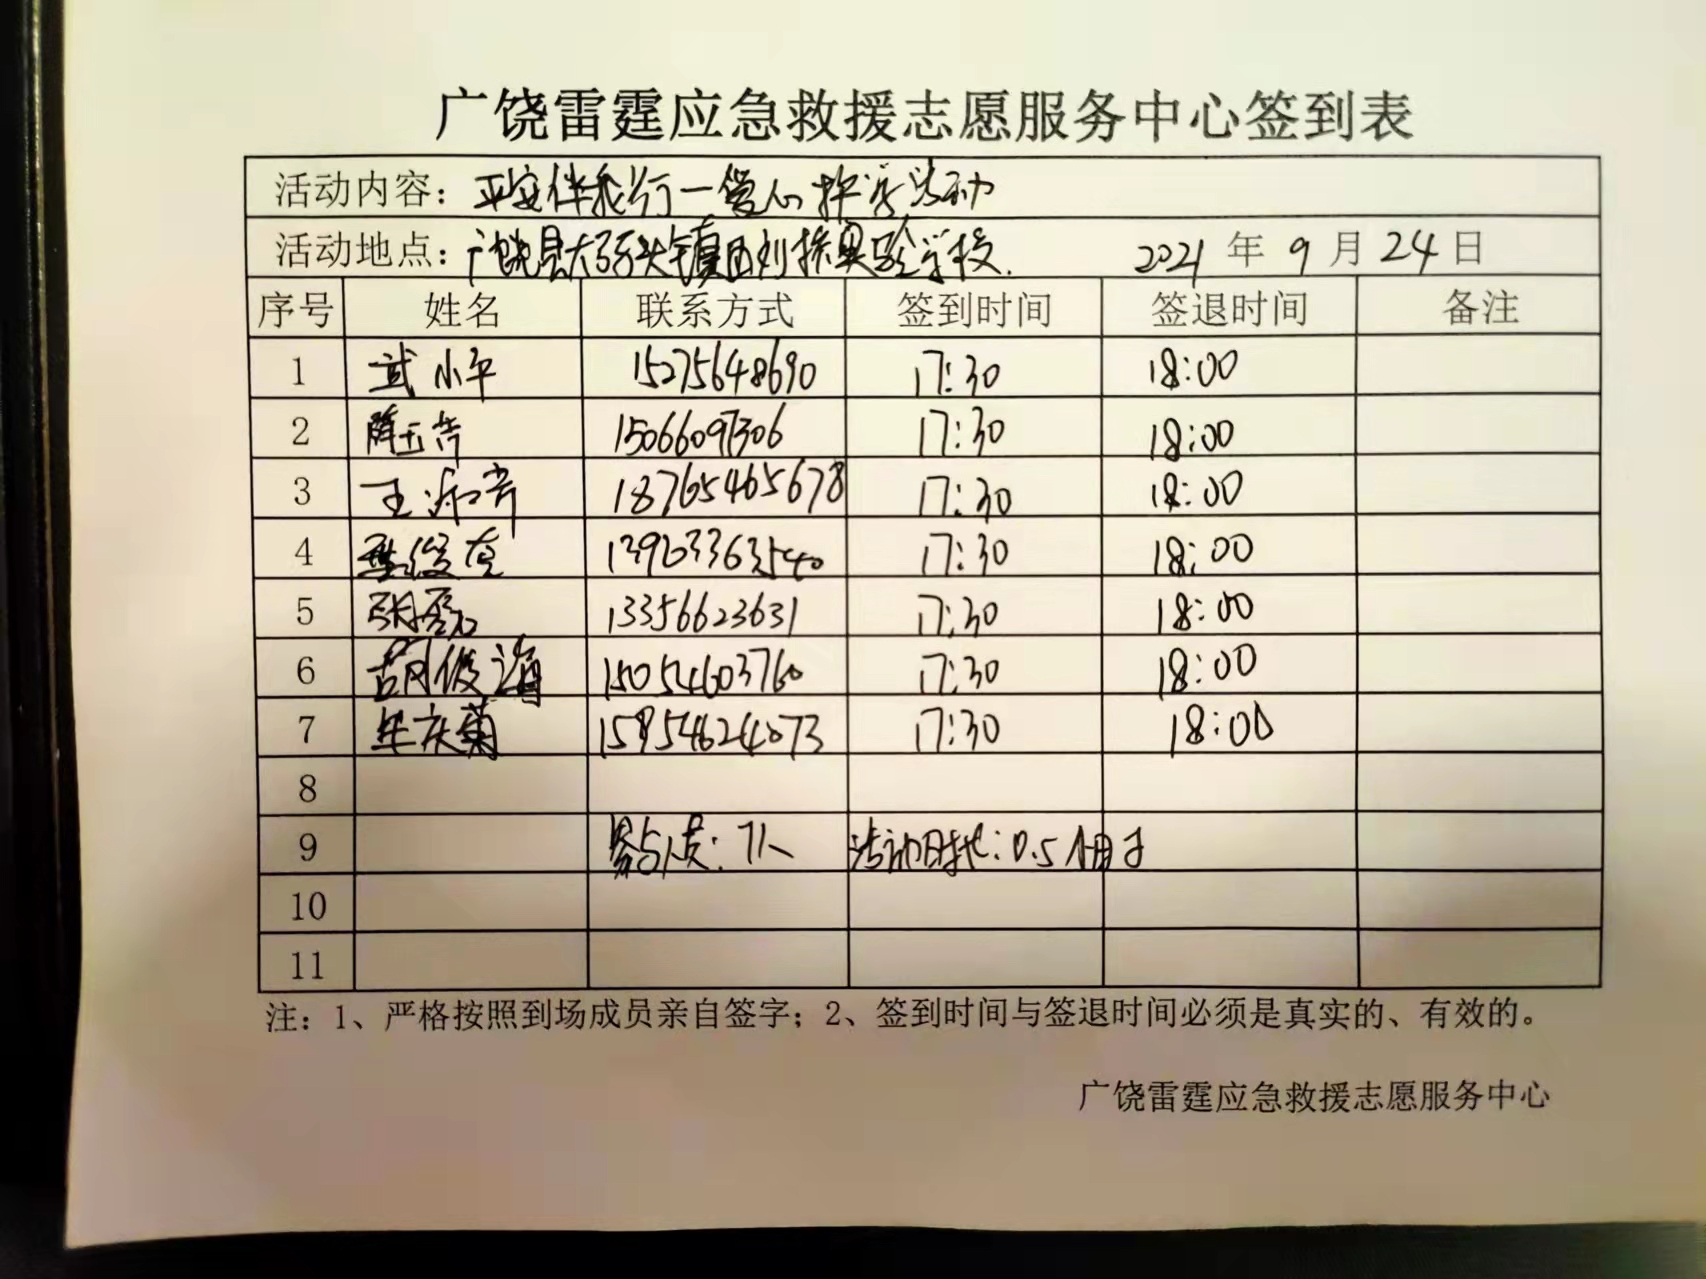 广饶雷霆应急救援志愿服务中心签到表
活动内容：平安伴我行一爱心护学活动
活动地点：广饶县大码头镇西刘桥实验学校. 2021年9月24日
序号 姓名 联系方式 签到时间 签退时间 备注
1 武小平 15275648690 17:30 18:00
2 15066097306 17:30 18:00
3 王 18765465678 17:30 18:00
4 17:30 18:00
5 13356623631 17:30 18:00
6 胡俊海 15054603760 17:30 18:00
7 15954624073 17:30 18:00
8
9 参与人员：7人 活动时长：0.5个小时
10
11
注：1、严格按照到场成员亲自签字；2、签到时间与签退时间必须是真实的、有效的。
广饶雷霆应急救援志愿服务中心